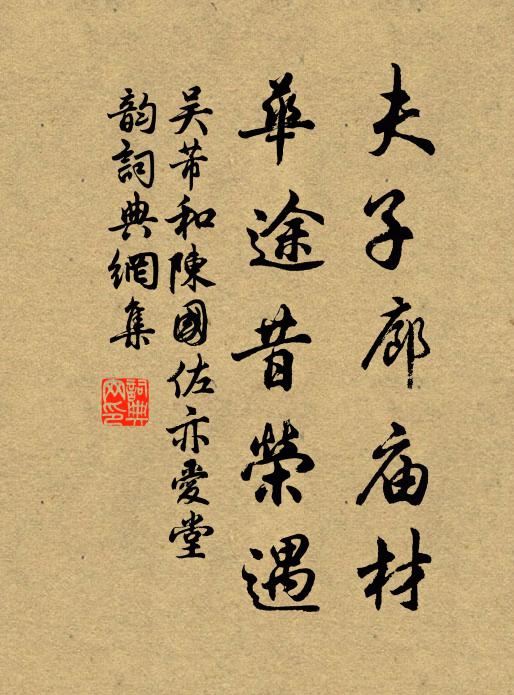 夫子廊庙材
華途昔榮遇
吴芾和陳國佐亦愛堂
韵詞典網集
詞典